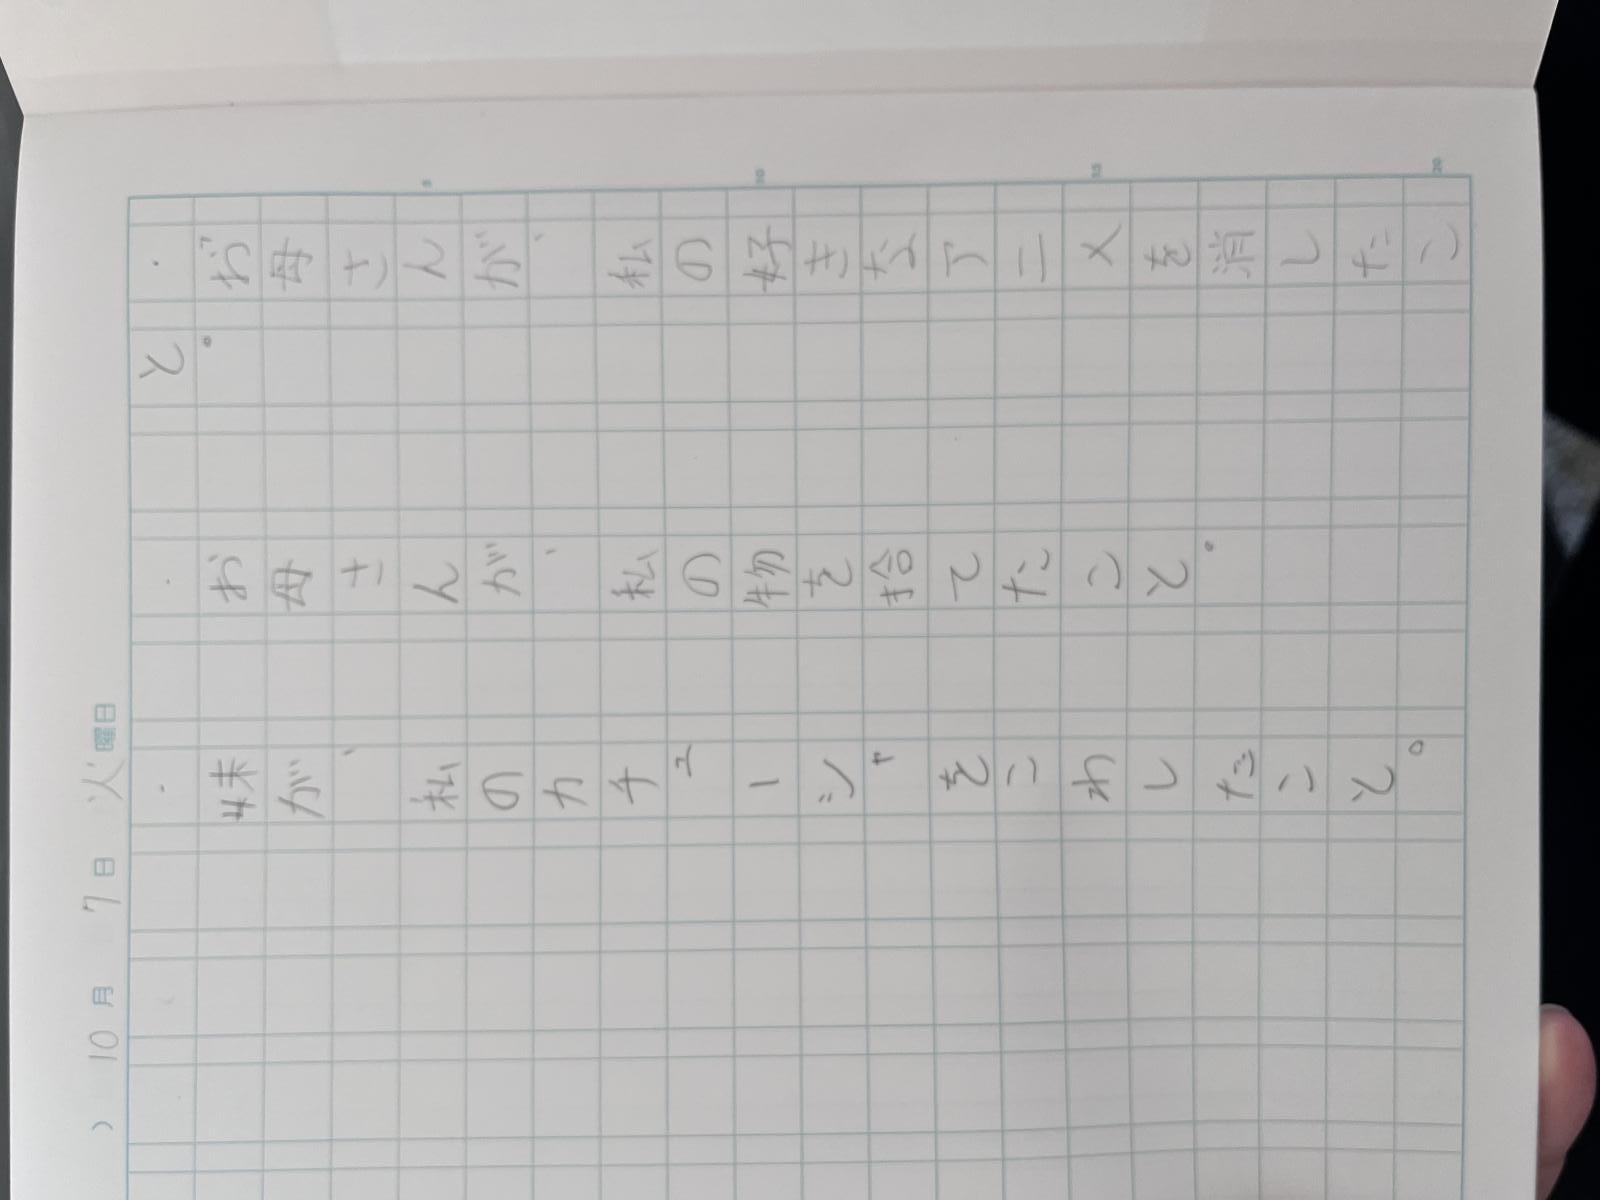 ) 10月 7日 火曜日
5 10 15 20
・お母さんが、私の好きなアニメを消したこ
と。
・お母さんが、私の物を拾てたこと。
・妹が、私のカチューシャをこわしたこと。